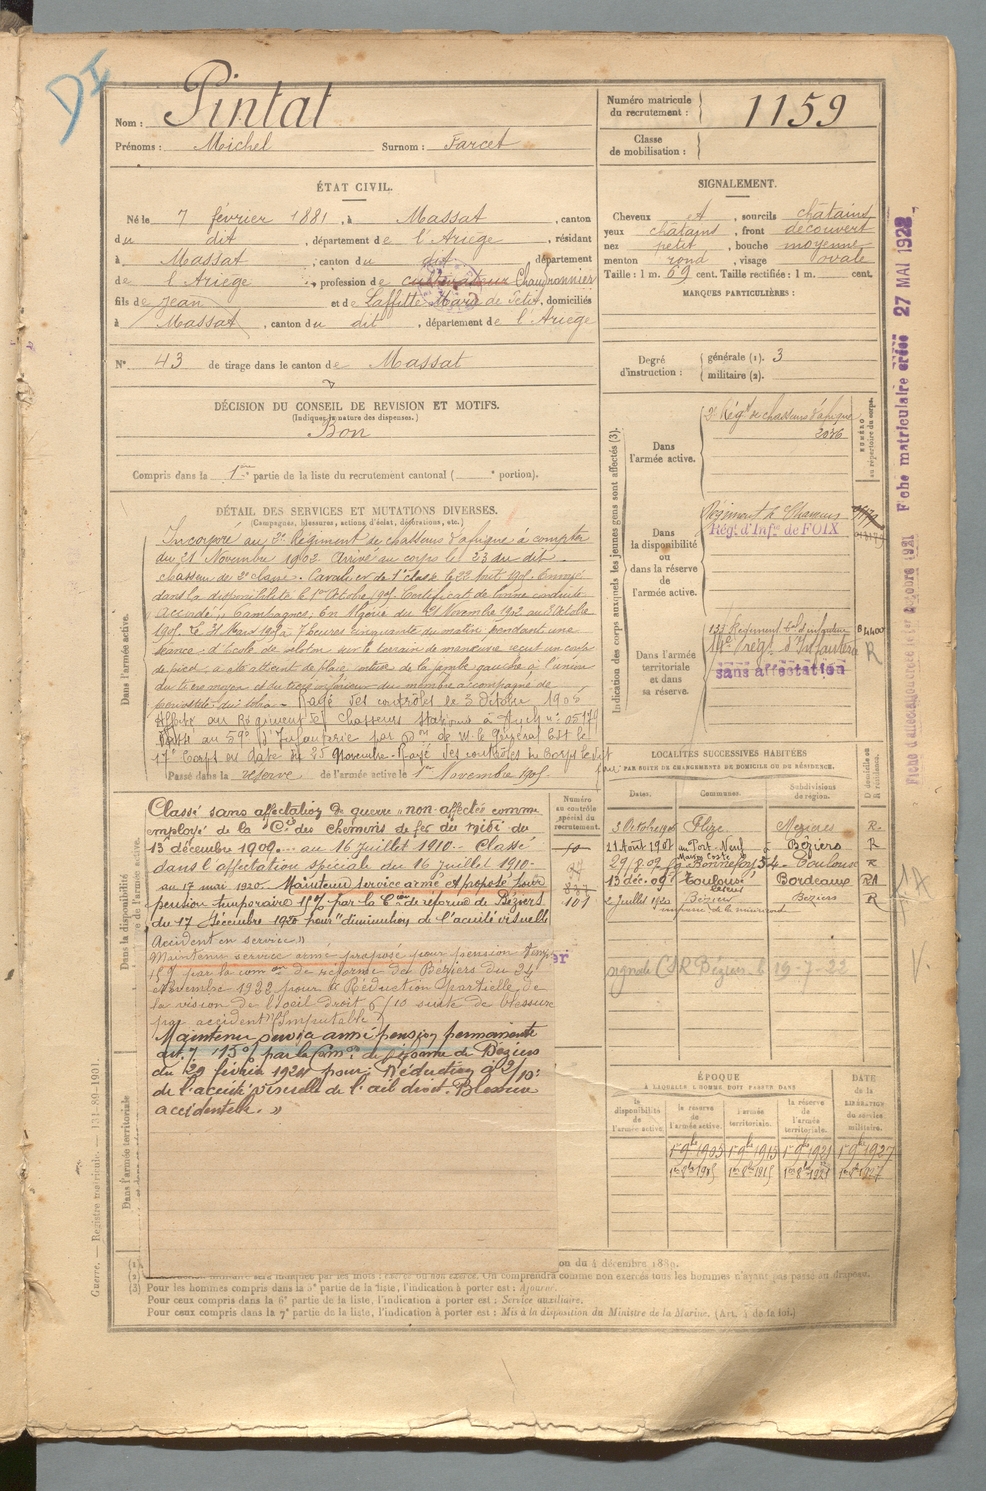 DI
Nom : Pintat
Prénoms : Michel Surnom : Farcet
Numéro matricule du recrutement : 1159
Classe de mobilisation :
ÉTAT CIVIL.
Né le 7 février 1881, à Massat, canton
du dit, département de l'Ariège, résidant
à Massat, canton du dit département
de l'Ariège, profession de cultivateur Chaudronnier
fils de Jean et de Laffitte Marie de Sétil, domiciliés
à Massat, canton du dit, département de l'Ariège
N° 43 de tirage dans le canton de Massat
SIGNALEMENT.
Cheveux et, sourcils châtains
yeux châtains, front découvert
nez petit, bouche moyenne
menton rond, visage ovale
Taille : 1 m. 69 cent. Taille rectifiée : 1 m. cent.
MARQUES PARTICULIÈRES :
Degré d'instruction : générale (1). 3
militaire (2).
DÉCISION DU CONSEIL DE REVISION ET MOTIFS.
(Indiquer la nature des dispenses.)
Bon
Compris dans la 1re partie de la liste du recrutement cantonal ( e portion).
DÉTAIL DES SERVICES ET MUTATIONS DIVERSES.
(Campagnes, blessures, actions d'éclat, décorations, etc.)
Incorporé au 3e Régiment de chasseurs d'afrique à compter
du 21 Novembre 1902. Arrivé au corps le 23 du dit
chasseur de 2e classe. Cavalier de 1e classe le 22 Août 1905. Envoyé
dans la disponibilité le 1er Octobre 1905. Certificat de bonne conduite
accordé. Campagnes. En Algérie du 21 Novembre 1902 au 3 Octobre
1905. Le 31 Mars 1905 à 7 heures cinquante du matin, pendant une
séance d'école de peloton sur le terrain de manœuvre reçut un coup
de pied, a été atteint de plaie contuse de la jambe gauche à l'union
du tiers moyen et du tiers inférieur du membre accompagné de
périostite du tibia. Rayé des contrôles le 3 Octobre 1905
Affecté au Régiment de Chasseurs stationné à Auch
Passé au 59e d'Infanterie par on de M. le Général Cdt le
17e Corps en date du 25 Novembre. Rayé des contrôles du Corps le dit
jour
Passé dans la réserve de l'armée active le 1er Novembre 1905.
Classé sans affectation de guerre "non affecté" comme
employé de la Cie des chemins de fer du Midi du
13 décembre 1909 au 16 juillet 1910 - Classé
dans l'affectation spéciale du 16 juillet 1910 -
au 17 mai 1920. Maintenu service armé et proposé pour
pension temporaire 15% par la Con de réforme de Béziers
du 17 Décembre 1920 pour "diminution de l'acuité visuelle
Accident en service"
Maintenu service armé proposé pour pension temp.
15% par la common de réforme de Béziers du 24
Novembre 1922 pour "Réduction partielle de
la vision de l'oeil droit 6/10 suite de blessure
par accident" (Imputable)
Maintenu service armé pension permanente
art. 7 15% par la Comon de réforme de Béziers
du 29 février 1924 pour : Réduction à 2/10e
de l'acuité visuelle de l'œil droit. Blessure
accidentelle. »
Dans l'armée active.
Dans la disponibilité
Dans l'armée territoriale
Guerre. — Registre matricule. — 131-89-1901
Indication des corps auxquels les jeunes gens sont affectés (3).
Dans l'armée active.
3e Régt de chasseurs d'afrique
2036
NUMÉRO au répertoire du corps.
Dans la disponibilité ou dans la réserve de l'armée active.
Régiment de Chasseurs
Régt d'Infie de FOIX
Dans l'armée territoriale et dans sa réserve.
133 Régiment tal d'infanterie
14e rég. d'Infanterie R
sans affectation
LOCALITÉS SUCCESSIVES HABITÉES
PAR SUITE DE CHANGEMENTS DE DOMICILE OU DE RÉSIDENCE.
Dates. Communes. Subdivisions de région. D domicile ou R résidence.
3 Octobre 1906 Flize Mézières R
21 Août 1908 au Port Neuf Béziers R
29.8.09 Bonnefoy 54 Toulouse R
13 déc. 09 Toulouse Bordeaux R
2 juillet 1920 Béziers Béziers R
Numéro au contrôle spécial du recrutement.
101
signalé CSR Béziers 19-7-22
ÉPOQUE
À LAQUELLE L'HOMME DOIT PASSER DANS
la disponibilité de l'armée active. la réserve de l'armée active. l'armée territoriale. la réserve de l'armée territoriale.
DATE de la LIBÉRATION du service militaire.
1er 9bre 1905 1er 9bre 1915 1er 9bre 1921 1er 9bre 1927
1er 8bre 1905 1er 8bre 1915 1er 8bre 1921 1er 8bre 1927
Fiche matriculaire créée 27 MAI 1922
on du 4 décembre 1889.
On comprendra comme non exercés tous les hommes n'ayant pas passé au drapeau.
Pour les hommes compris dans la 5e partie de la liste, l'indication à porter est : Ajourné.
Pour ceux compris dans la 6e partie de la liste, l'indication à porter est : Service auxiliaire.
Pour ceux compris dans la 7e partie de la liste, l'indication à porter est : Mis à la disposition du Ministre de la Marine. (Art. 4 de la loi.)